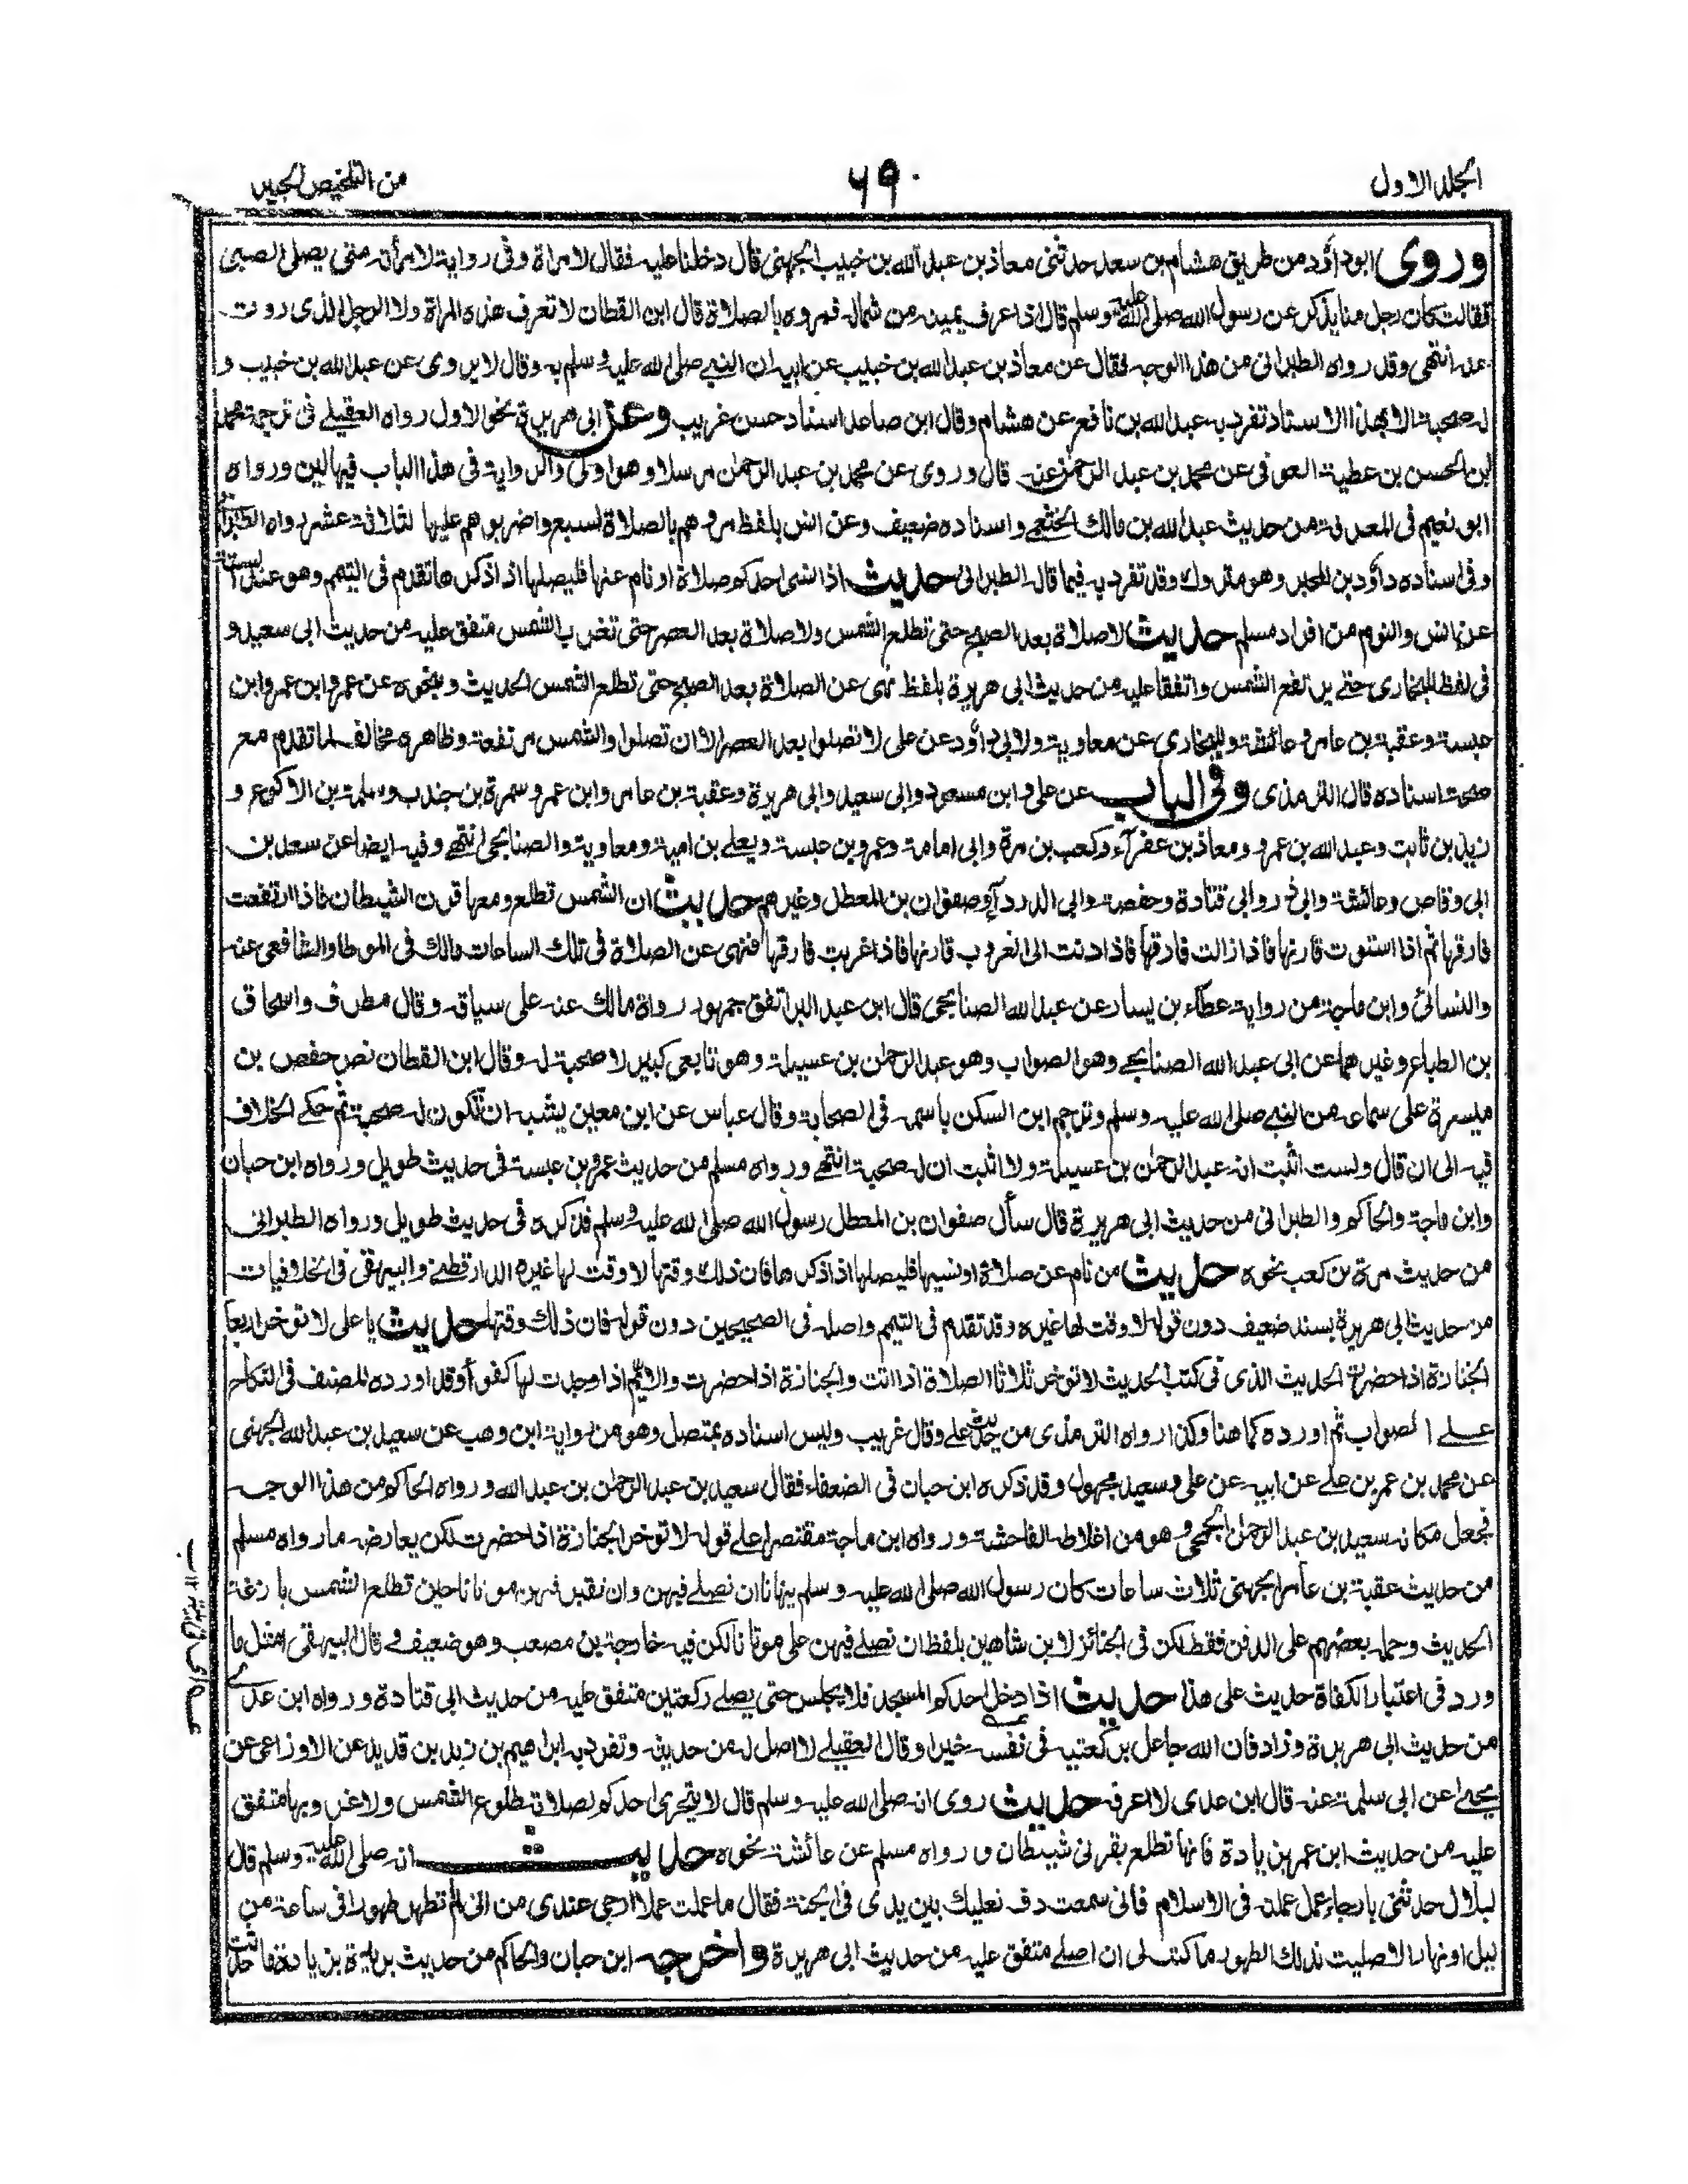 الجلد الاول
٦٩٠
من التلخيص الحبير
وروى ابوداؤد من طريق هشام بن سعد حدثنى معاذ بن عبد الله بن خبيب الجهنى قال دخلنا عليه فقال لامراة وفى رواية لامرأته متى يصلى الصبى
فقالت كان رجل منا يذكر عن رسول الله صلى الله عليه وسلم قال اذا عرف يمينه من شماله فمروه بالصلاة قال ابن القطان لا تعرف هذه المراة ولا الرجل الذى روت
عنه انتهى وقد رواه الطبرانى من هذا الوجه فقال عن معاذ بن عبد الله بن خبيب عن ابيه ان النبى صلى الله عليه وسلم به وقال لا يروى عن عبد الله بن خبيب و
له صحبة الا بهذا الاسناد تفرد به عبد الله بن نافع عن هشام وقال ابن صاعد اسناد حسن غريب وعن ابى هريرة نحو الاول رواه العقيلى فى ترجمة محمد
ابن الحسن بن عطية العوفى عن محمد بن عبد الرحمن عنه قال وروى عن محمد بن عبد الرحمان مرسلا وهو اولى والرواية فى هذا الباب فيها لين ورواه
ابو نعيم فى المعرفة من حديث عبد الله بن مالك الخثعمى واسناده ضعيف وعن انس بلفظ مروهم بالصلاة لسبع واضربوهم عليها لثلاثة عشر رواه الطبرانى
وفى اسناده داؤد بن المحبر وهو متروك وقد تفرد به فيما قاله الطبرانى حديث اذا نسى احدكم صلاة او نام عنها فليصلها اذا ذكرها تقدم فى التيمم وهو عند الستة
عن انس والنوم من افراد مسلم حديث لا صلاة بعد الصبح حتى تطلع الشمس ولا صلاة بعد العصر حتى تغرب الشمس متفق عليه من حديث ابى سعيد و
فى لفظ للبخارى حتى يرتفع الشمس واتفقا عليه من حديث ابى هريرة بلفظ نهى عن الصلاة بعد الصبح حتى تطلع الشمس الحديث ونحوه عن عمر وابن عمر وابن
عبسة وعقبة بن عامر وعائشة وللبخارى عن معاوية ولابى داؤد عن على لا تصلوا بعد العصر الا ان تصلوا والشمس مرتفعة وظاهره مخالف لما تقدم مع
صحة اسناده قال الترمذى وفى الباب عن على وابن مسعود وابى سعيد وابى هريرة وعقبة بن عامر وابن عمر وسمرة بن جندب وسلمة بن الاكوع و
زيد بن ثابت وعبد الله بن عمرو ومعاذ بن عفرآء وكعب بن مرة وابى امامة وعمرو بن عبسة ويعلى بن امية ومعاوية والصنابحى انتهى وفيه ايضا عن سعد بن
ابى وقاص وعائشة وابى ذر وابى قتادة وحفصة وابى الدرداء وصفوان بن المعطل وغيرهم حديث ان الشمس تطلع ومعها قرن الشيطان فاذا ارتفعت
فارقها ثم اذا استوت قارنها فاذا زالت فارقها فاذا دنت الى الغروب قارنها فاذا غربت فارقها فنهى عن الصلاة فى تلك الساعات مالك فى الموطا والشافعى عنه
والنسائى وابن ماجة من رواية عطاء بن يسار عن عبد الله الصنابحى قال ابن عبد البر اتفق جمهور رواة مالك عنه على سياقه وقال مطرف واسحاق
بن الطباع وغيرهما عن ابى عبد الله الصنابحى وهو الصواب وهو عبد الرحمان بن عسيلة وهو تابعى كبير لا صحبة له وقال ابن القطان نص حفص بن
ميسرة على سماعه من النبى صلى الله عليه وسلم وترجم ابن السكن باسمه فى الصحابة وقال عباس عن ابن معين يشبه ان تكون له صحبة ثم حكى الخلاف
فيه الى ان قال ولست اثبت انه عبد الرحمان بن عسيلة ولا اثبت ان له صحبة انتهى ورواه مسلم من حديث عمرو بن عبسة فى حديث طويل ورواه ابن حبان
وابن ماجة والحاكم والطبرانى من حديث ابى هريرة قال سأل صفوان بن المعطل رسول الله صلى الله عليه وسلم فذكره فى حديث طويل ورواه الطبرانى
من حديث مرة بن كعب نحوه حديث من نام عن صلاة او نسيها فليصلها اذا ذكرها فان ذلك وقتها لا وقت لها غيره الدارقطنى والبيهقى فى الخلافيات
من حديث ابى هريرة بسند ضعيف دون قوله لا وقت لها غيره وقد تقدم فى التيمم واصله فى الصحيحين دون قوله فان ذلك وقتها حديث يا على لا توخر اربعا
الجنازة اذا حضرت الحديث الذى فى كتب الحديث لا توخر ثلاثا الصلاة اذا اتت والجنازة اذا حضرت والايم اذا وجدت لها كفوا وقد اورده المصنف فى النكاح
على الصواب ثم اورده كما هنا وكذا رواه الترمذى من حديث على وقال غريب وليس اسناده بمتصل وهو من رواية ابن وهب عن سعيد بن عبد الله الجهنى
عن محمد بن عمر بن على عن ابيه عن على وسعيد مجهول وقد ذكره ابن حبان فى الضعفاء فقال سعيد بن عبد الرحمان بن عبد الله ورواه الحاكم من هذا الوجه
فجعل مكانه سعيد بن عبد الرحمان الجمحى وهو من اغلاطه الفاحشة ورواه ابن ماجة مقتصرا على قوله لا توخر الجنازة اذا حضرت لكن يعارضه ما رواه مسلم
من حديث عقبة بن عامر الجهنى ثلاث ساعات كان رسول الله صلى الله عليه وسلم ينهانا ان نصلى فيهن وان نقبر فيهن موتانا حين تطلع الشمس بازغة
الحديث وحمله بعضهم على الدفن فقط لكن فى الجنائز لابن شاهين بلفظ ان نصلى فيهن على موتانا لكن فيه خارجة بن مصعب وهو ضعيف وقال البيهقى امثل ما
ورد فى اعتبار الكفاة حديث على هذا حديث اذا دخل احدكم المسجد فلا يجلس حتى يصلى ركعتين متفق عليه من حديث ابى قتادة ورواه ابن عدى
من حديث ابى هريرة وزاد فان الله جاعل بركعتيه فى نفسه خيرا وقال العقيلى لا اصل له من حديثه وتفرد به ابراهيم بن زيد بن قديد عن الاوزاعى عن
يحيى عن ابى سلمة عنه قال ابن عدى لا اعرفه حديث روى انه صلى الله عليه وسلم قال لا يتحرى احدكم بصلاته طلوع الشمس ولا غروبها متفق
عليه من حديث ابن عمر بزيادة فانها تطلع بقرنى شيطان ورواه مسلم عن عائشة نحوه حديث انه صلى الله عليه وسلم قال
لبلال حدثنى بارجاء عمل عملته فى الاسلام فانى سمعت دف نعليك بين يدى فى الجنة فقال ما عملت عملا ارجى عندى من انى لم تطهر طهورا فى ساعة من
ليل او نهار الا صليت بذلك الطهور ما كتب لى ان اصلى متفق عليه من حديث ابى هريرة واخرجه ابن حبان والحاكم من حديث بريدة بزيادة ما حدثت